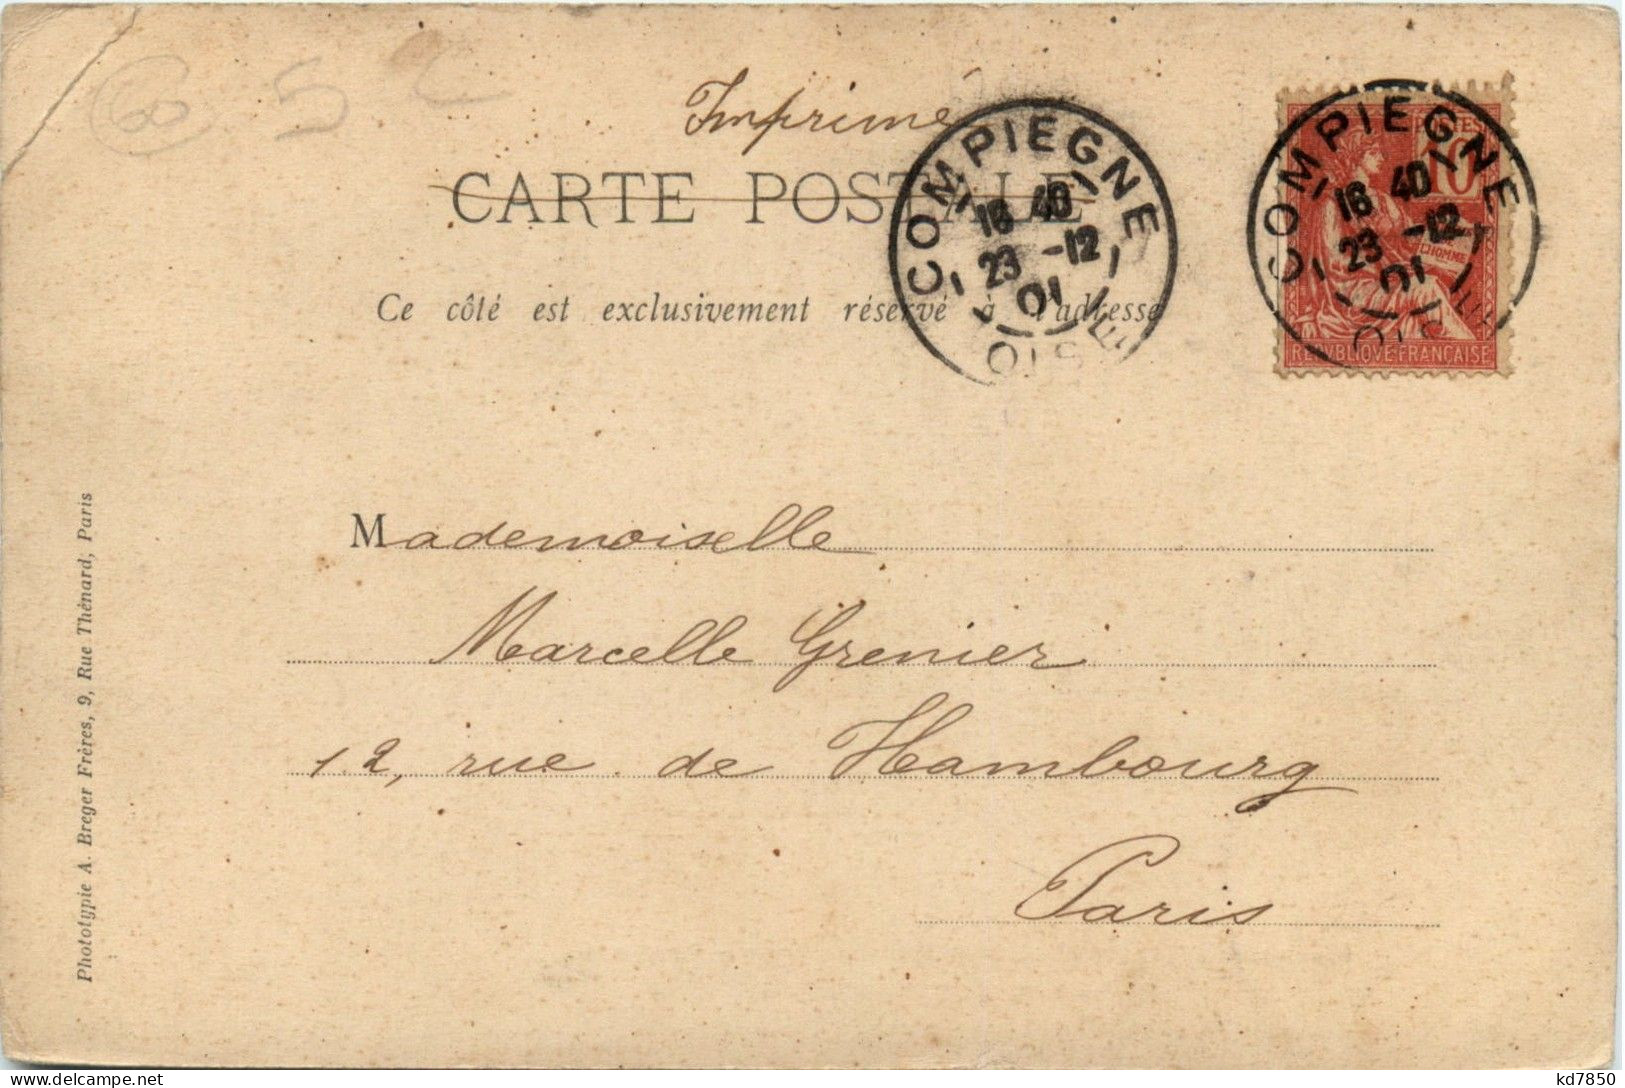 60 5
Imprimé
CARTE POSTALE
Ce côté est exclusivement réservé à l'adresse
COMPIEGNE
16 40
23 -12
01
OISE
COMPIEGNE
16 40
23 -12
01
OISE
POSTES
10
L'HOMME
REPVBLIQVE FRANÇAISE
Mademoiselle
Marcelle Grenier
12, rue de Hambourg
Paris
Phototypie A. Breger Frères, 9, Rue Thénard, Paris
kd7850